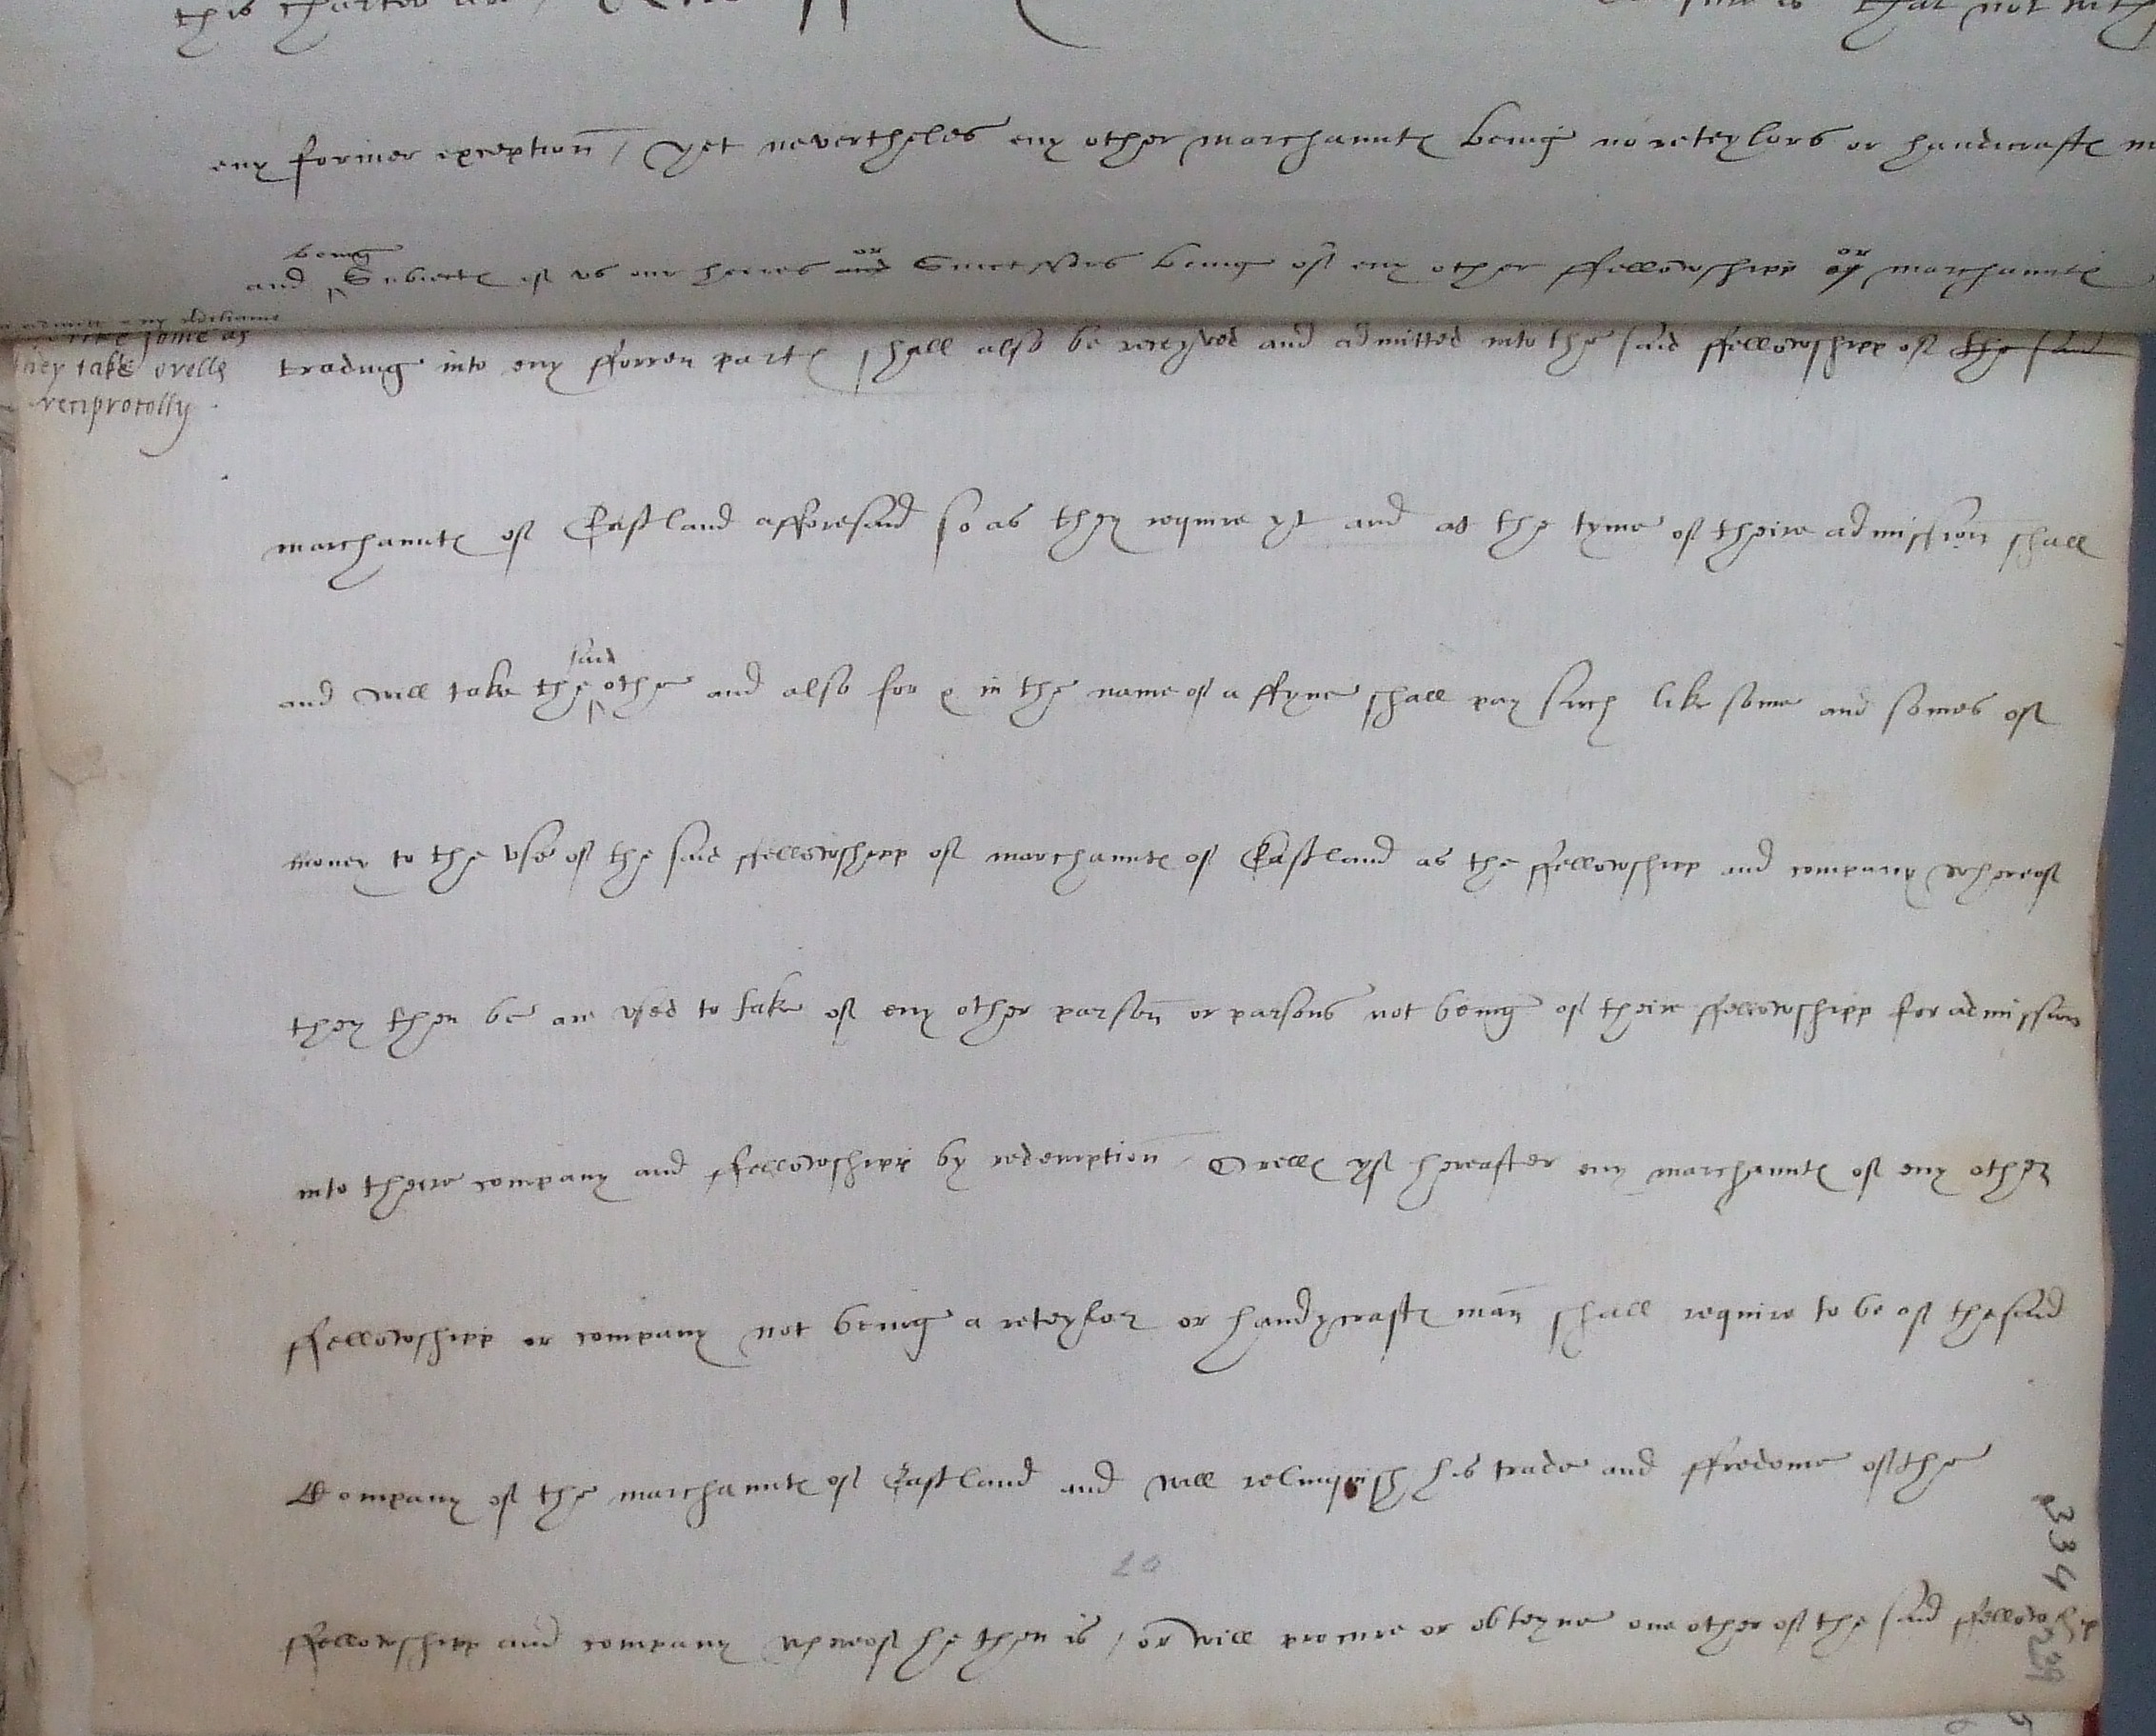 this charter
that not with
eny former exception / Yet nevertheles eny other marchaunts being no reteylors or handicrafts
being
or
or
and ^ Subiects of vs our heires and Successors being of eny other ffellowshipp of marchaunts
trading into eny fforren parts shall also be receyved and admitted into the said ffellowshipp of the said
like some as
they take orells
reciprocolly
marchaunts of Eastland afforesaid so as they require yt and at the tyme of theire admission shall
said
and will take the ^ othe and also for & in the name of a ffyne shall pay such like some and somes of
money to the vse of the said ffellowshipp of marchaunts of Eastland as the ffellowshipp and company whereof
they then be are vsed to take of eny other parson or parsons not being of theire ffellowshipp for admission
into theire company and ffellowshipp by redemption / Orells yf hereafter eny marchaunts of eny other
ffellowshipp or company not being a reteylor or handycrafts man shall require to be of the said
Company of the marchaunts of Eastland and will relinquish his trade and ffredome of the
20
ffellowshipp and company whereof he then is / or will procure or obteyne one other of the said ffellowship
334
229